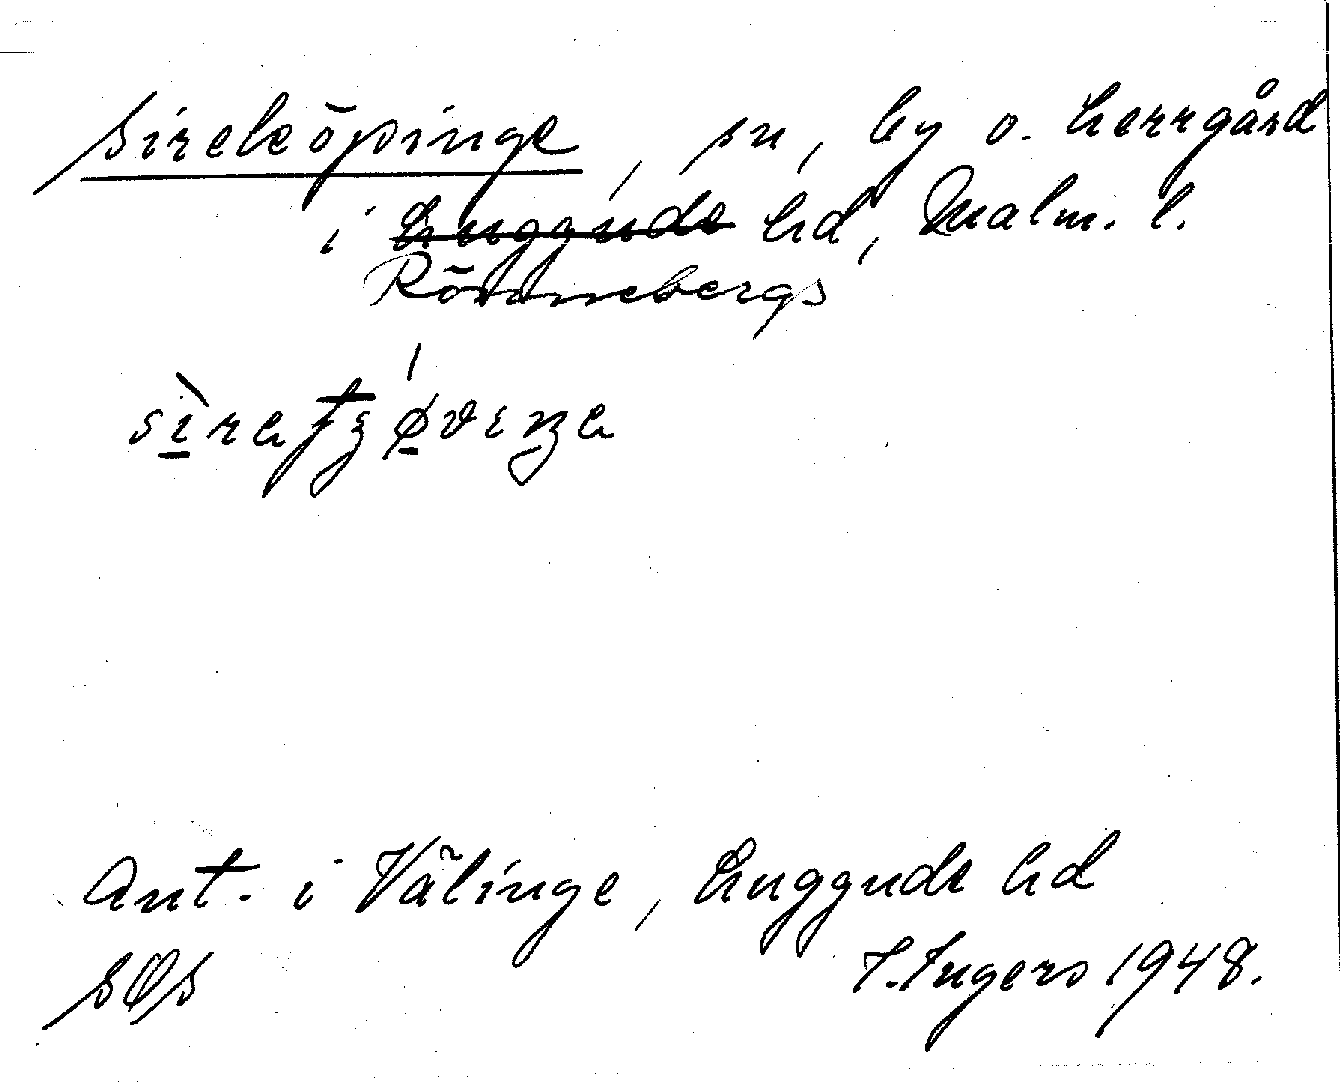 Sireköpinge, sn, by o. herrgård
i Luggude hd, Malm. l.
Rönnebergs
Ant. i Välinge, Luggude hd
SOS I. Ingers 1948.